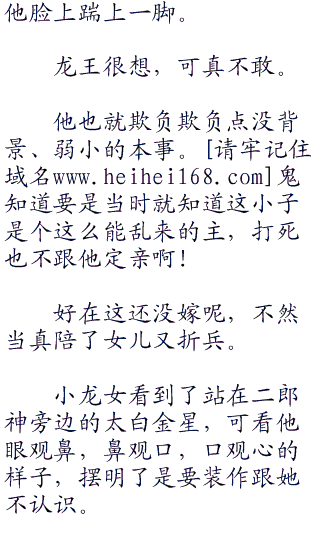 他脸上踹上一脚。
龙王很想，可真不敢。
他也就欺负欺负点没背
景、弱小的本事。[请牢记住
域名www.heihei168.com]鬼
知道要是当时就知道这小子
是个这么能乱来的主，打死
也不跟他定亲啊！
好在这还没嫁呢，不然
当真陪了女儿又折兵。
小龙女看到了站在二郎
神旁边的太白金星，可看他
眼观鼻，鼻观口，口观心的
样子，摆明了是要装作跟她
不认识。